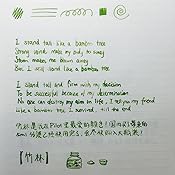 I stand tall like a bamboo tree
Strong wind, make my body to sway
Storm makes me blown away
But I still stand like a bamboo tree
I stand tall and firm with my decision
To be successful because of my determination
No one can destroy my aim in life, I tell you my friend
Like a bamboo tree I survived, till the end
竹林是我在Pilot里最爱的颜色！
5ml
【竹林】